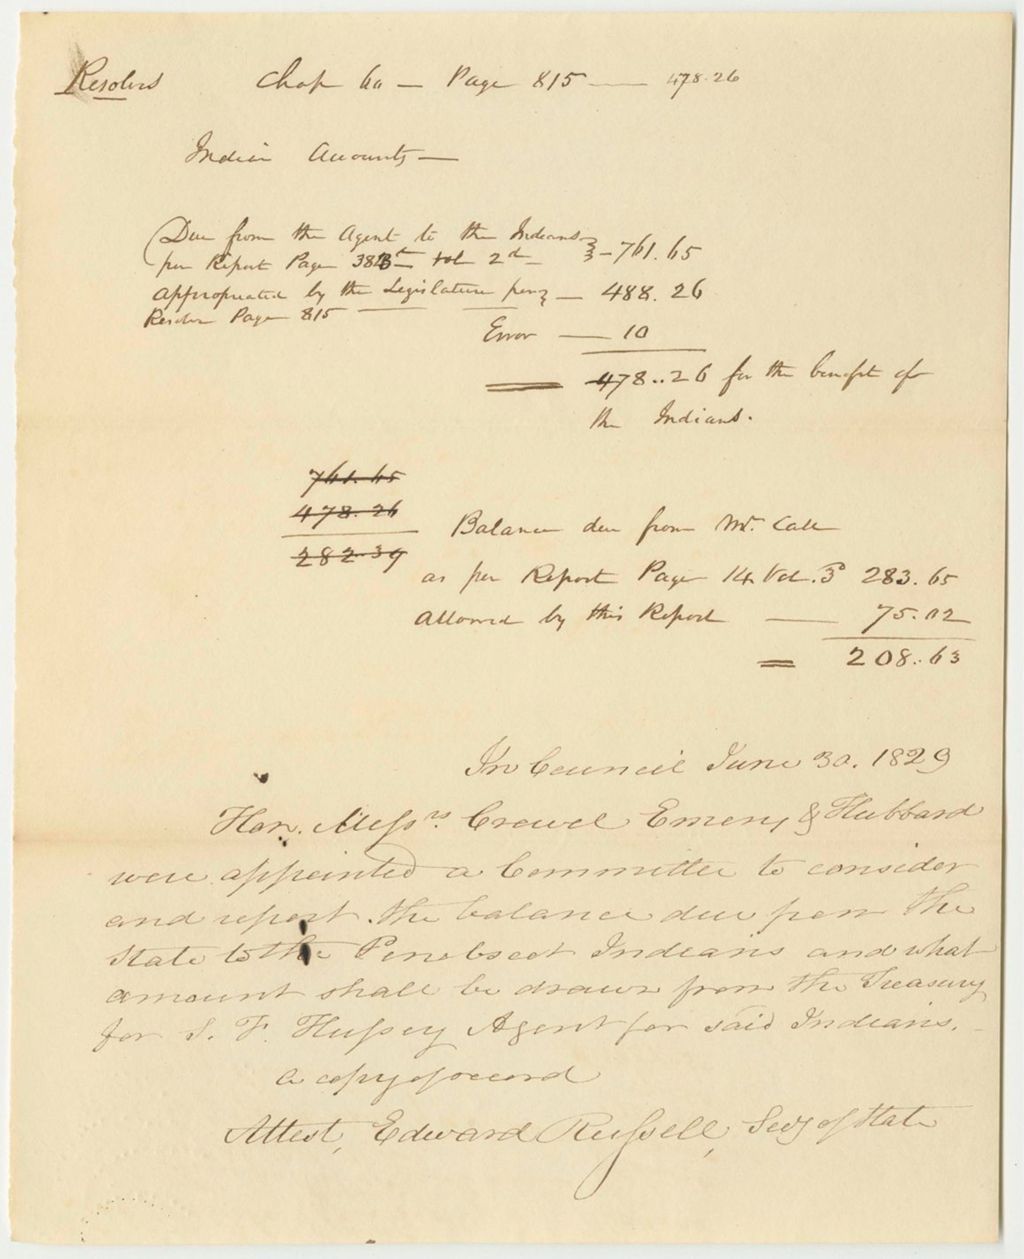 Resolves Chap 60 — Page 815 — 478.26
Indian Accounts —
Due from the Agent to the Indians
per Report Page 388 vol 2d — 761.65
appropriated by the Legislature per — 488.26
Resolve Page 815
Error — 10
478..26 for the benefit of
the Indians.
761.65
478.26
282.39
Balance due from Mr. Call
as per Report Page 14 Vol. 3d 283.65
allowed by this Report — 75.02
= 208.63
In Council June 30. 1829
Hon. Messrs. Crewel Emery & Hubbard
were appointed a Committee to consider
and report the balance due from the
State to the Penobscot Indians and what
amount shall be drawn from the Treasury
for S. F. Hussey Agent for said Indians.
a copy of record
Attest, Edward Russell, Secy of State